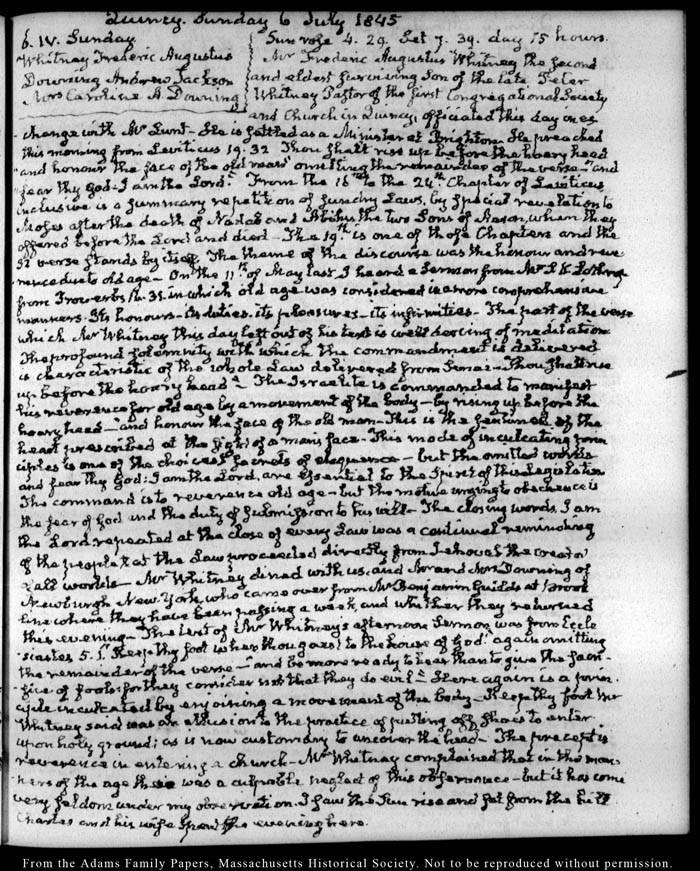 Quincy. Sunday 6 July 1845
6. IV. Sunday.
Whitney Frederic Augustus
Downing Andrew Jackson
Mrs Caroline A. Downing
Sun rose 4. 29. Set 7. 39. day 15 hours.
Mr Frederic Augustus Whitney the second
and eldest surviving Son of the late Peter
Whitney Pastor of the first Congregational Society
and Church in Quincy, officiated this day in ex-
change with Mr Lunt - He is settled as a Minister at Brighton. He preached
this morning from Leviticus 19. 32 Thou shalt rise up before the hoary head
and honour the face of the old man" omitting the remainder of the verse - and
fear thy God: I am the Lord." From the 18th to the 24th Chapter of Leviticus
inclusive is a summary repetition of sundry Laws, by special revelation to
Moses after the death of Nadab and Abihu the two Sons of Aaron, when they
offered before the Lord and died - The 19th is one of those Chapters and the
32 verse stands by itself. The theme of the discourse was the honour and reve-
rence due to old age - On the 11th of May last I heard a Sermon from Mr S. K. Lothrop
from Proverbs 16. 31. in which old age was considered in a more comprehensive
manner. Its honours - its duties. its pleasures - its infirmities - The part of the verse
which Mr Whitney this day left out of his text is well deserving of meditation
The profound solemnity with which the commandment is delivered
is characteristic of the whole Law delivered from Sinai - Thou shalt rise
up before the hoary head - The Israelite is commanded to manifest
his reverence for old age by a movement of the body - by rising up before the
hoary head - and honour the face of the old man - This is the sentiment of the
heart prescribed at the sight of a mans face - This mode of inculcating prin-
ciples is one of the choicest secrets of eloquence - but the omitted words
and fear thy God: I am the Lord, are essential to the Spirit of this Legislation
The command is to reverence old age - but the motive urging to obedience is
the fear of God and the duty of submission to his will - The closing words, I am
the Lord repeated at the close of every Law was a continual reminding
of the people that the Law proceeded directly from Jehovah the creator
of all worlds - Mr Whitney dined with us, and Mr and Mrs Downing of
Newburgh New-York, who came over from Mr Benjamin Guild's at Brook-
line where they have been passing a week, and whither they returned
this evening - The text of Mr Whitney's afternoon Sermon was from Eccle-
siastes 5. 1. Keep thy foot when thou goest to the house of God: again omitting
the remainder of the verse - and be more ready to hear than to give the sacri-
fice of fools: for they consider not that they do evil - Here again is a prin-
ciple inculcated by enjoining a movement of the body - Keep thy foot Mr
Whitney said was an allusion to the practice of putting off shoes to enter
upon holy ground; as is now customary to uncover the head - The precept is
reverence in entering a church - Mr Whitney complained that in the man-
ners of the age there was a culpable neglect of this observance - but it has come
very seldom under my observation. I saw the Sun rise and set from the hill
Charles and his wife spent the evening here.
From the Adams Family Papers, Massachusetts Historical Society. Not to be reproduced without permission.